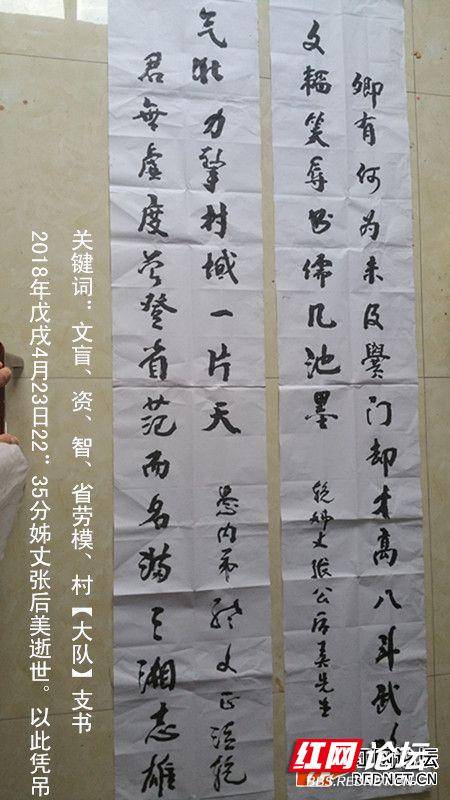 卿有何为未及黉门却才高八斗武
文韬笑辱书儒几池墨
挽姊丈张公后美先生
君無虚度誉登省范而名满三湘志雄
气壮力擎村域一片天
愚内弟 文正泣挽
关键词：文盲、资、智、省劳模、村【大队】支书
2018年戊戌4月23日22”35分姊丈张后美逝世。以此凭吊
红网论坛
REDNET.CN